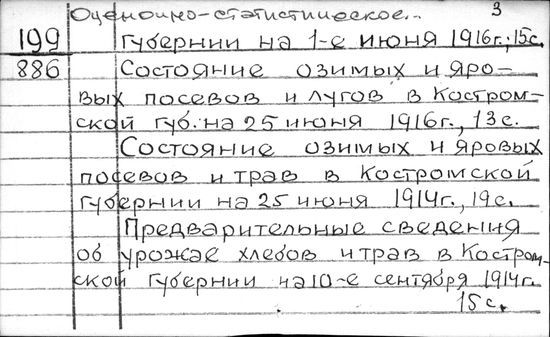 Оценочно-статистическое... 3
199 губернии на 1-е июня 1916г.; 15с.
886 Состояние озимых и яро-
вых посевов и лугов в Костром-
ской губ. на 25 июня 1916г., 13с.
Состояние озимых и яровых
посевов и трав в Костромской
губернии на 25 июня 1914г., 19с.
Предварительные сведения
об урожае хлебов и трав в Костром-
ской губернии на 10-е сентября 1914г.
15с.